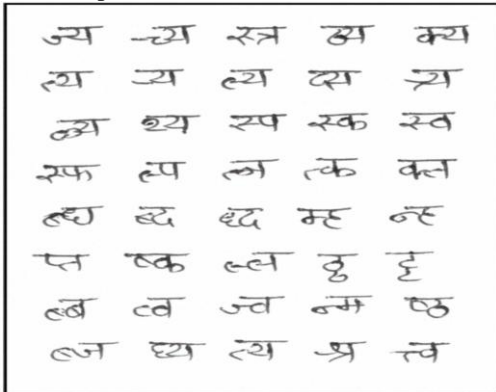 ज्य च्य स्त्र ठ्य क्य
त्य ज्य ल्य द्य त्र्य
ळ्य थ्य स्प स्क स्व
स्फ ल्प त्न त्क क्ल
ब्ध ब्द ध्द म्ह न्ह
प्त ष्क ल्ल ठ्ठ ट्ट
ब्ब त्व ज्व न्म ष्ठ
ब्ज ध्य त्य श्र त्त्व